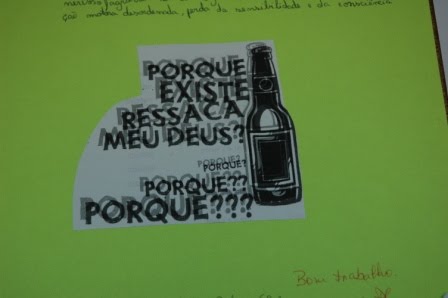 ção motora desordenada, perda da sensibilidade e da consciência
PORQUE
EXISTE
RESSACA
MEU DEUS?
PORQUE?
PORQUE?
PORQUE??
PORQUE???
Bom trabalho.